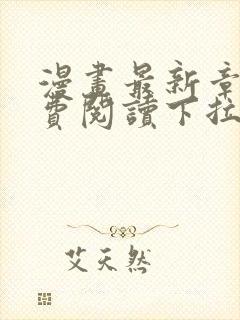 漫畫最新章
費閱讀下拉
艾天然